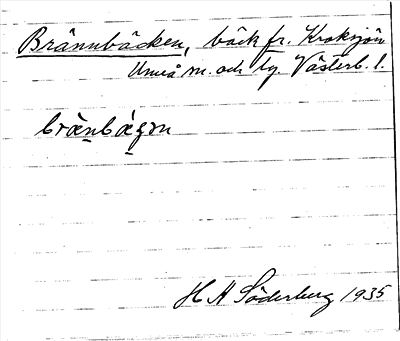 Brännbäcken, bäck fr. Kroksjön
Umeå sn. och tg. Västerb. l.
brä̱nbä̱gɔn
H A Söderberg 1935